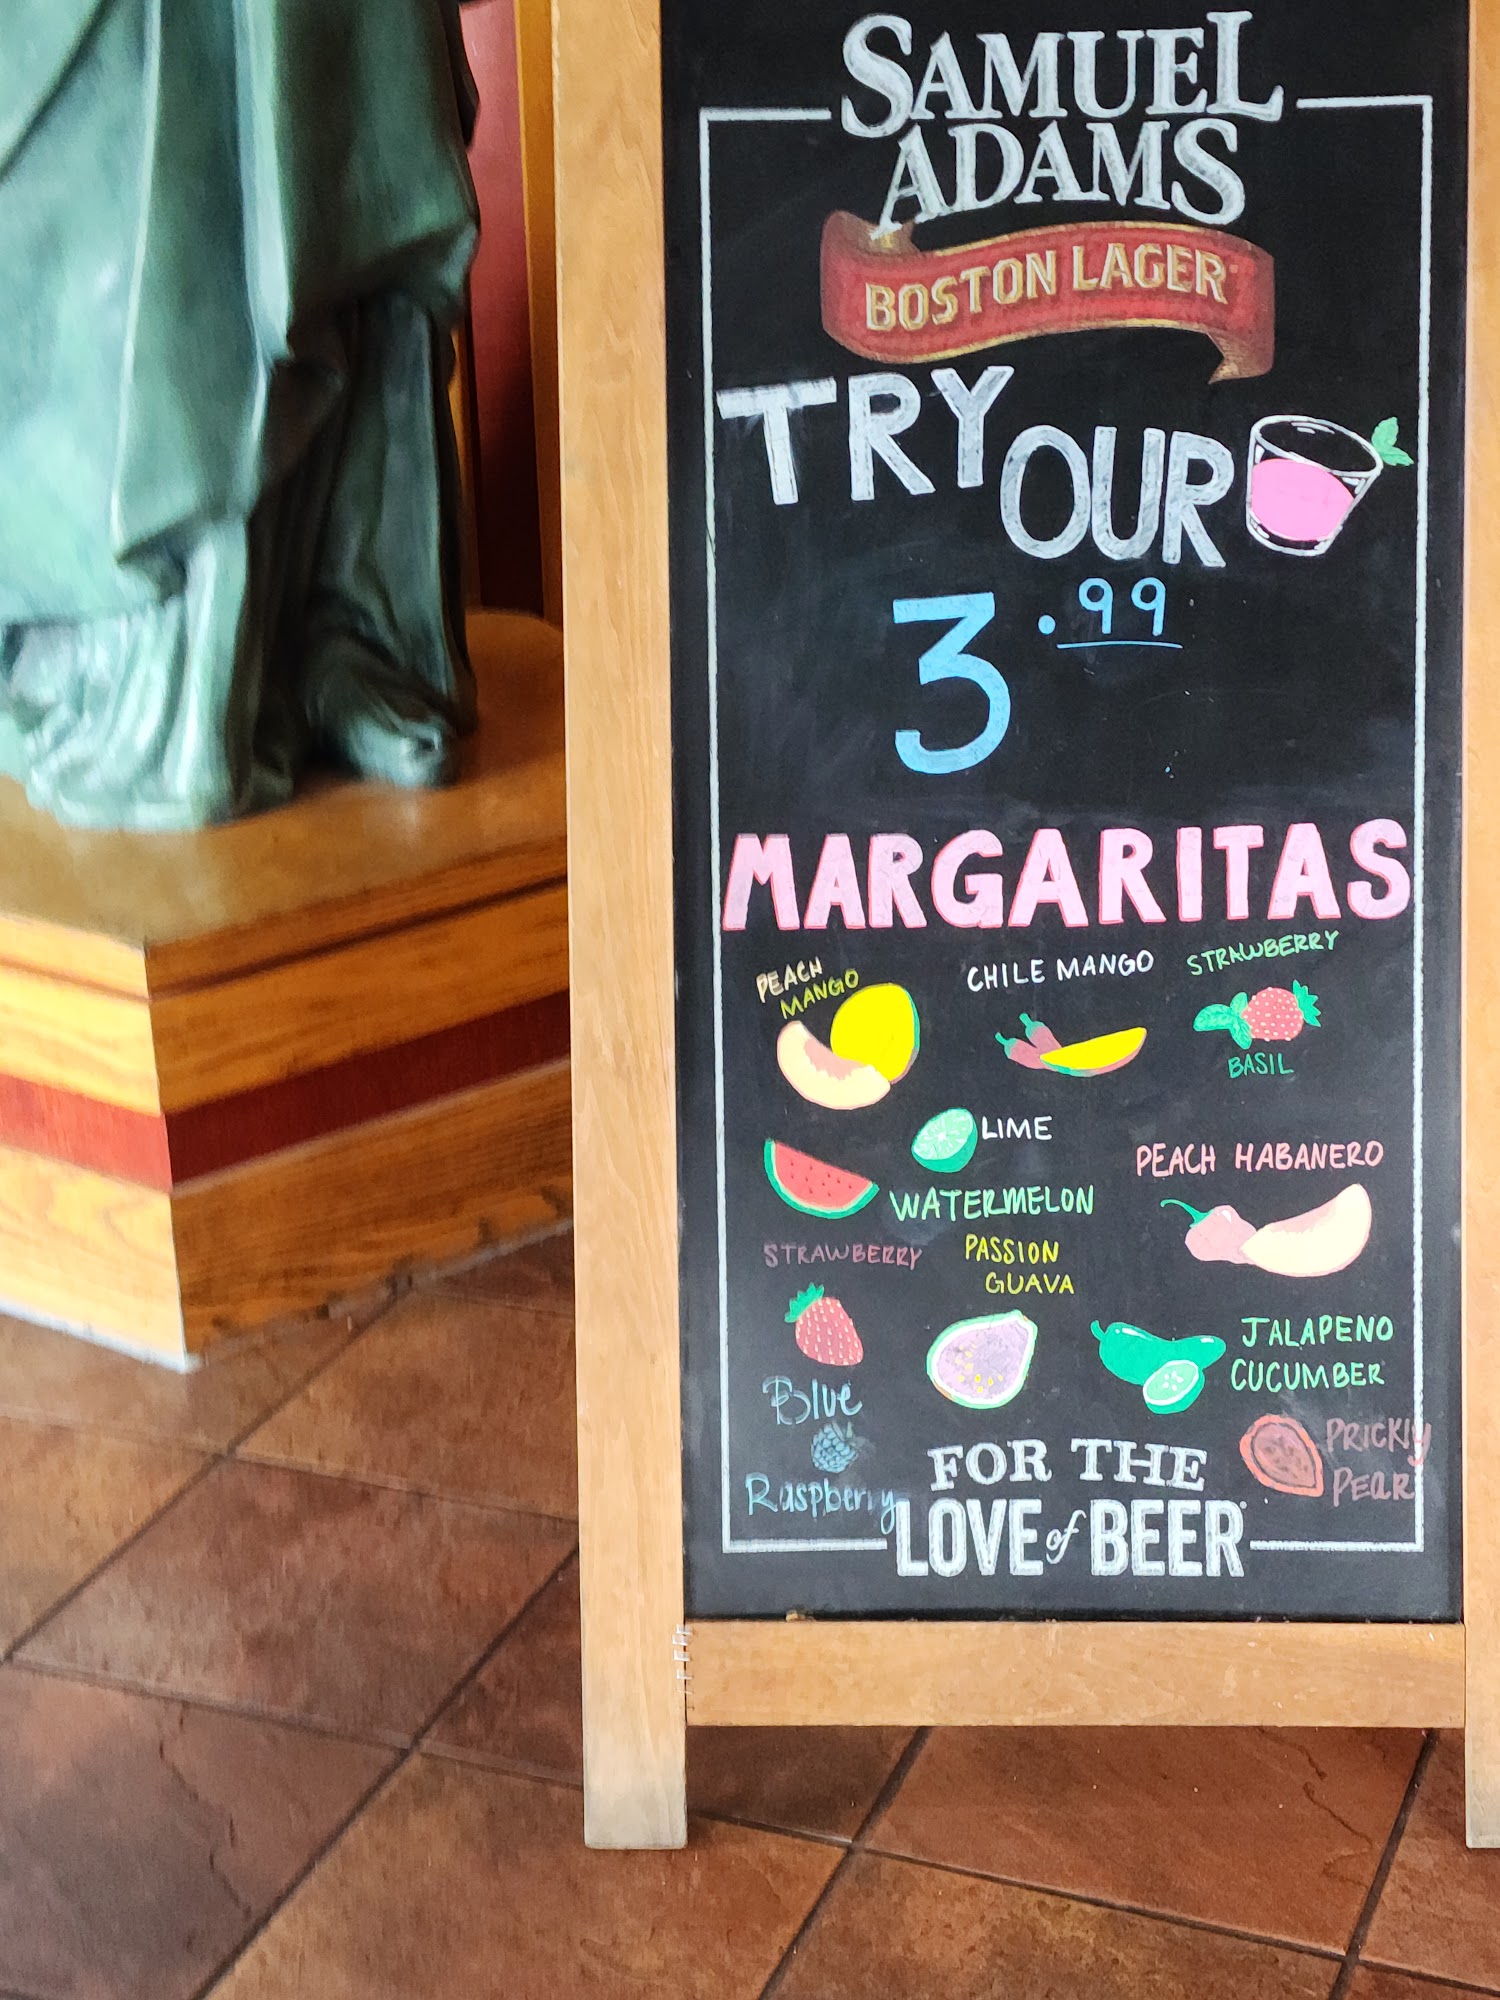 SAMUEL
ADAMS
BOSTON LAGER
TRY
OUR
3.99
MARGARITAS
PEACH
MANGO
CHILE MANGO
STRAWBERRY
BASIL
LIME
WATERMELON
PEACH HABANERO
STRAWBERRY
PASSION
GUAVA
JALAPENO
CUCUMBER
Blue
Raspberry
PRICKLY
PEAR
FOR THE
LOVE of BEER